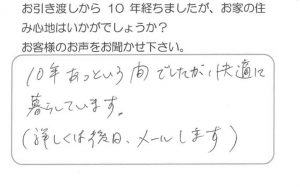 お引き渡しから 10 年経ちましたが、お家の住
み心地はいかがでしょうか？
お客様のお声をお聞かせ下さい。
10年あっという間でしたが、快適に
暮らしています。
(詳しくは後日、メールします)